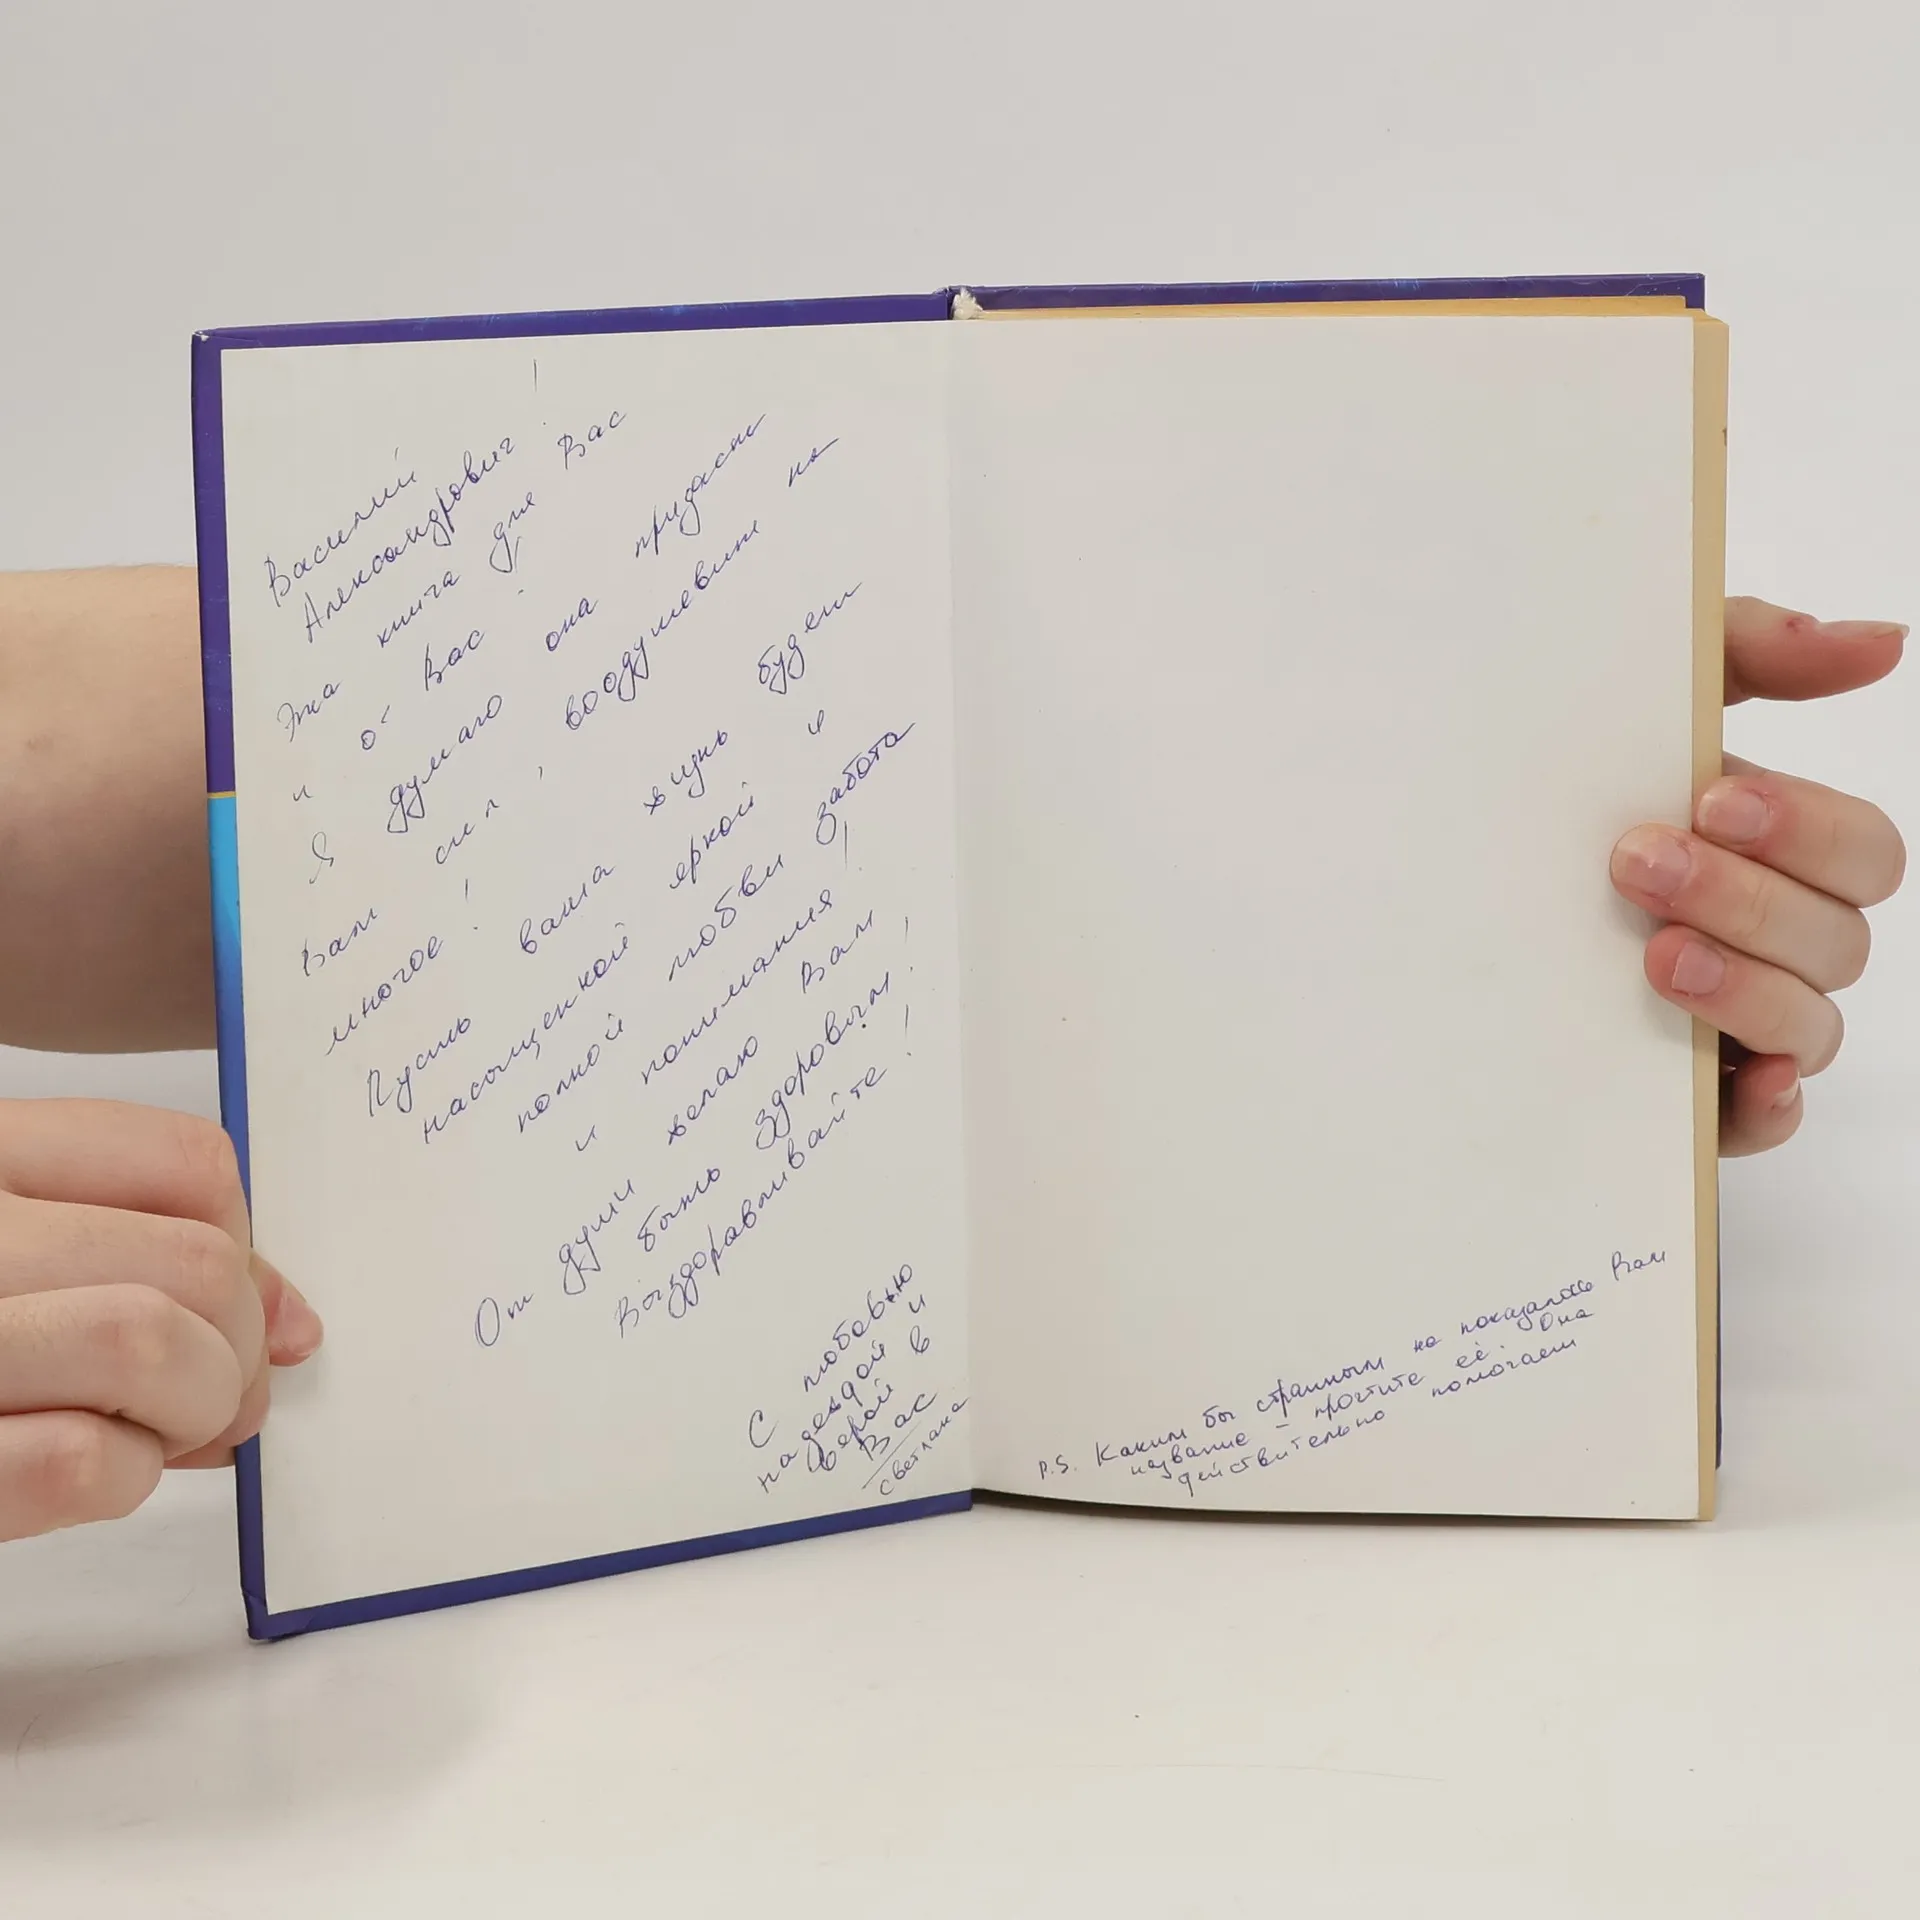 Василий
Александрович!
Эта книга для Вас
и о Вас.
Я думаю она придаст
Вам сил, воодушевит на
многое!
Пусть ваша жизнь будет
насыщенной яркой и
полной любви забота
и понимания!
От души желаю Вам
быть здоровым!
Выздоравливайте!
С любовью
надеждой и
верой в
Вас
Светлана
P.S. Каким бы странным не показалось Вам
название – прочтите её. Она
действительно помогает